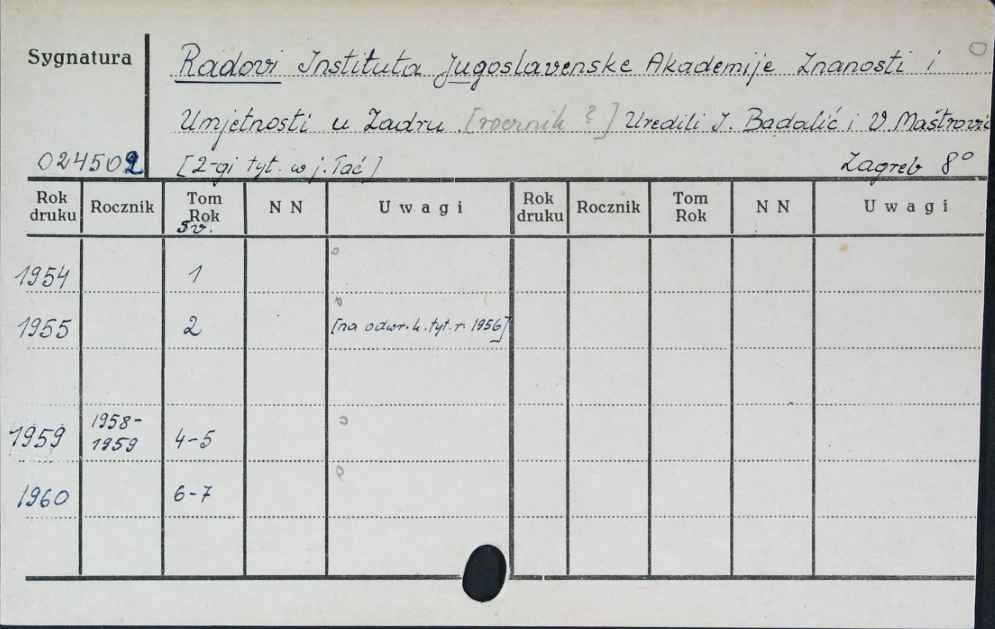 Sygnatura
Radovi Instituta Jugoslavenske Akademije Znanosti i
Umjetnosti u Zadru [rocznik ?] Uredili J. Badalić i V. Maštrović
024502 [2-gi tyt. w j. łać] Zagreb 8°
Rok druku Rocznik Tom Rok N N Uwagi Rok druku Rocznik Tom Rok N N Uwagi
sv.
1954 1
1955 2 [na odwr. k. tyt. r. 1956]
1959 1958-1959 4-5
1960 6-7